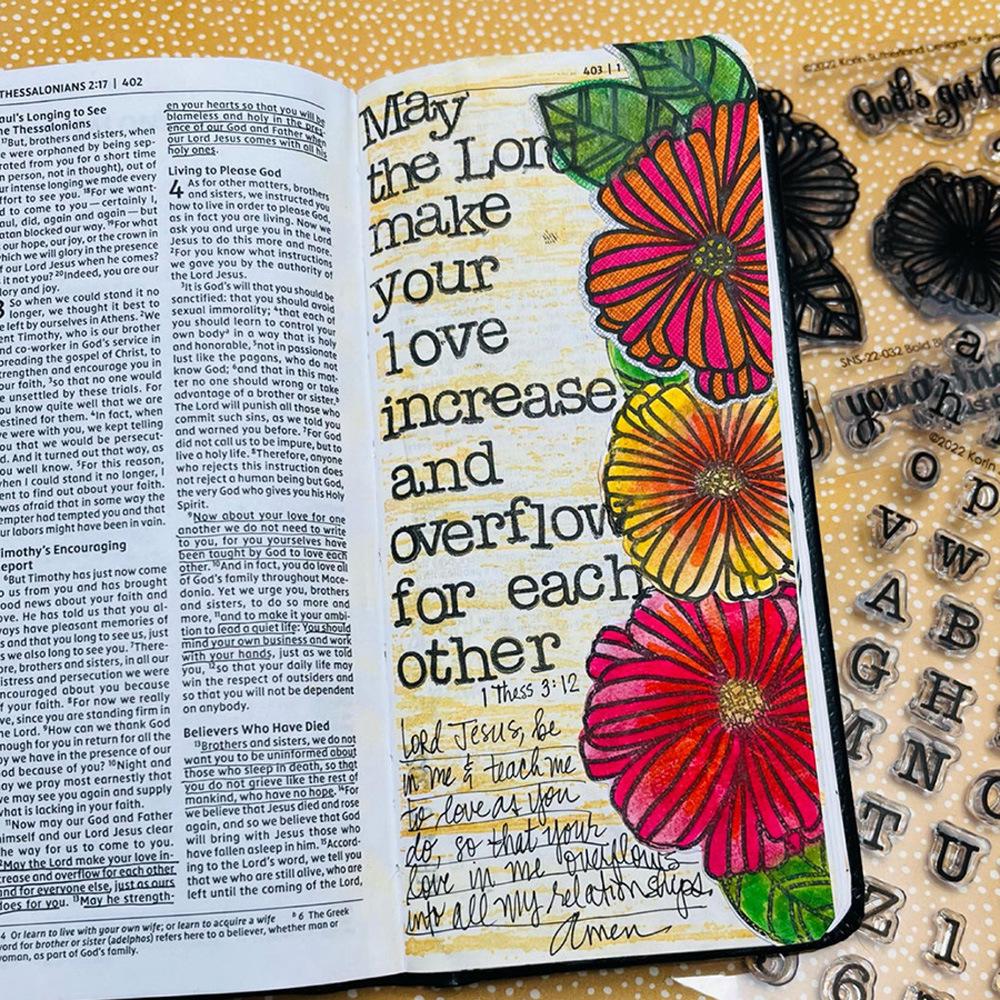 THESSALONIANS 2:17 | 402
aul's Longing to See
he Thessalonians
17But, brothers and sisters, when
e were orphaned by being sep-
rated from you for a short time
n person, not in thought), out of
ur intense longing we made every
ffort to see you. 18For we want-
d to come to you—certainly I,
aul, did, again and again—but
atan blocked our way. 19For what
our hope, our joy, or the crown in
which we will glory in the presence
f our Lord Jesus when he comes?
it not you? 20Indeed, you are our
lory and joy.
3 So when we could stand it no
longer, we thought it best to
e left by ourselves in Athens. 2We
ent Timothy, who is our brother
nd co-worker in God's service in
preading the gospel of Christ, to
trengthen and encourage you in
our faith, 3so that no one would
e unsettled by these trials. For
ou know quite well that we are
estined for them. 4In fact, when
e were with you, we kept telling
ou that we would be persecut-
d. And it turned out that way, as
ou well know. 5For this reason,
hen I could stand it no longer, I
ent to find out about your faith.
was afraid that in some way the
empter had tempted you and that
ur labors might have been in vain.
imothy's Encouraging
eport
6But Timothy has just now come
o us from you and has brought
ood news about your faith and
ove. He has told us that you al-
ays have pleasant memories of
s and that you long to see us, just
s we also long to see you. 7There-
ore, brothers and sisters, in all our
istress and persecution we were
ncouraged about you because
f your faith. 8For now we really
ve, since you are standing firm in
he Lord. 9How can we thank God
nough for you in return for all the
oy we have in the presence of our
od because of you? 10Night and
ay we pray most earnestly that
e may see you again and supply
hat is lacking in your faith.
11Now may our God and Father
imself and our Lord Jesus clear
he way for us to come to you.
May the Lord make your love in-
rease and overflow for each other
nd for everyone else, just as ours
oes for you. 13May he strength-
en your hearts so that you will be
blameless and holy in the pres-
ence of our God and Father when
our Lord Jesus comes with all his
holy ones.
Living to Please God
4 As for other matters, brothers
and sisters, we instructed you
how to live in order to please God,
as in fact you are living. Now we
ask you and urge you in the Lord
Jesus to do this more and more.
2For you know what instructions
we gave you by the authority of
the Lord Jesus.
3It is God's will that you should be
sanctified: that you should avoid
sexual immorality; 4that each of
you should learn to control your
own body a in a way that is holy
and honorable, 5not in passionate
lust like the pagans, who do not
know God; 6and that in this mat-
ter no one should wrong or take
advantage of a brother or sister.b
The Lord will punish all those who
commit such sins, as we told you
and warned you before. 7For God
did not call us to be impure, but to
live a holy life. 8Therefore, anyone
who rejects this instruction does
not reject a human being but God,
the very God who gives you his Holy
Spirit.
9Now about your love for one
another we do not need to write
to you, for you yourselves have
been taught by God to love each
other. 10And in fact, you do love all
of God's family throughout Mace-
donia. Yet we urge you, brothers
and sisters, to do so more and
more, 11and to make it your ambi-
tion to lead a quiet life: You should
mind your own business and work
with your hands, just as we told
you, 12so that your daily life may
win the respect of outsiders and
so that you will not be dependent
on anybody.
Believers Who Have Died
13Brothers and sisters, we do not
want you to be uninformed about
those who sleep in death, so that
you do not grieve like the rest of
mankind, who have no hope. 14For
we believe that Jesus died and rose
again, and so we believe that God
will bring with Jesus those who
have fallen asleep in him. 15Accord-
ing to the Lord's word, we tell you
that we who are still alive, who are
left until the coming of the Lord,
4 Or learn to live with your own wife; or learn to acquire a wife b 6 The Greek
word for brother or sister (adelphos) refers here to a believer, whether man or
woman, as part of God's family.
403 | 1
May
the Lord
make
your
love
increase
and
overflow
for each
other
1 Thess 3:12
Lord Jesus, be
in me & teach me
to love as you
do, so that your
love in me overflows
into all my relationships.
Amen
©2022 Karin Sutherland Designs for
God's got
SNS-22-032 Bold
©2022 Karin
a
h
o p
v w
A B
G H
M N
T U
Z 1
6